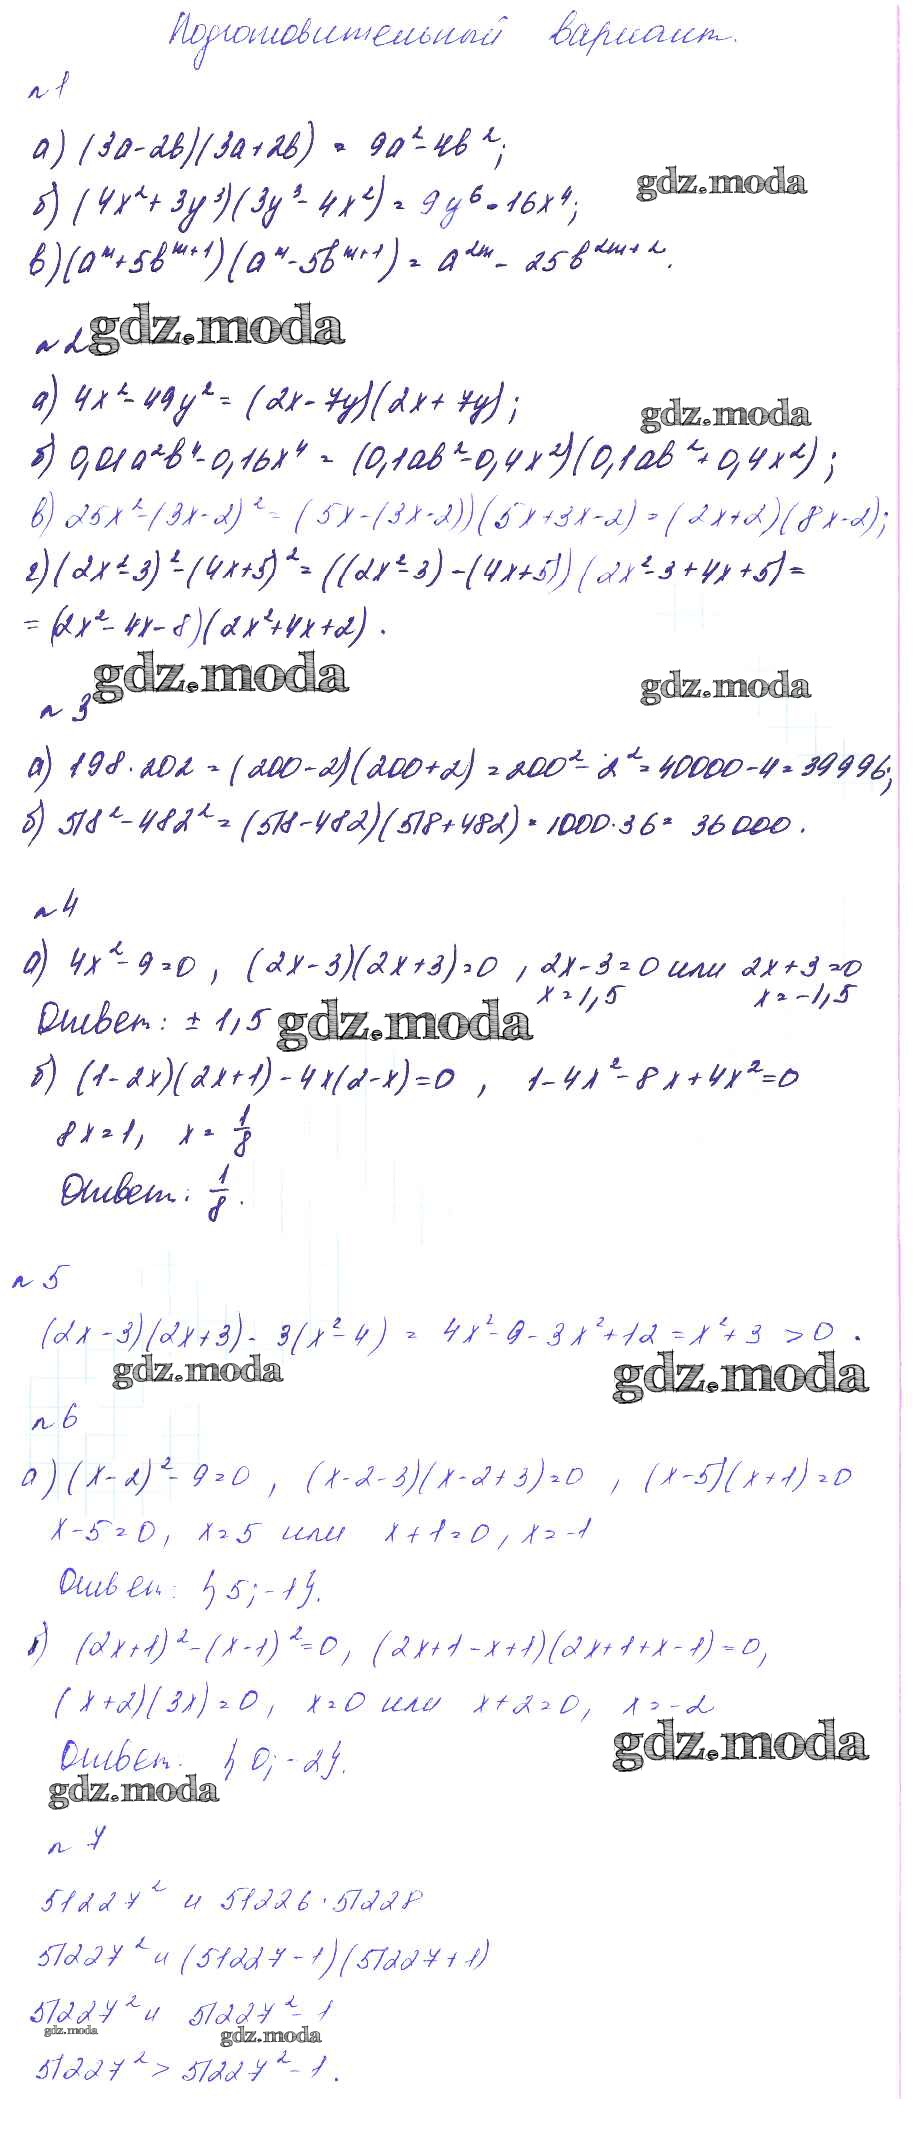 Подготовительный вариант.
n 1
а) (3a-2b)(3a+2b) = 9a²-4b²;
б) (4x²+3y³)(3y³-4x²) = 9y⁶-16x⁴;
gdz.moda
в) (aᵐ+5bᵐ⁺¹)(aᵐ-5bᵐ⁺¹) = a²ᵐ - 25b²ᵐ⁺².
n 2 gdz.moda
а) 4x²-49y² = (2x-7y)(2x+7y);
gdz.moda
б) 0,01a²b⁴-0,16x⁴ = (0,1ab²-0,4x²)(0,1ab²+0,4x²);
в) 25x²-(3x-2)² = (5x-(3x-2))(5x+3x-2) = (2x+2)(8x-2);
г) (2x²-3)²-(4x+5)² = ((2x²-3)-(4x+5))(2x²-3+4x+5) =
= (2x²-4x-8)(2x²+4x+2).
gdz.moda gdz.moda
n 3
а) 198·202 = (200-2)(200+2) = 200²-2² = 40000-4 = 39996;
б) 518²-482² = (518-482)(518+482) = 1000·36 = 36000.
n 4
а) 4x²-9=0, (2x-3)(2x+3)=0, 2x-3=0 или 2x+3=0
x=1,5 x=-1,5
Ответ: ±1,5 gdz.moda
б) (1-2x)(2x+1)-4x(2-x)=0, 1-4x²-8x+4x²=0
8x=1, x=1/8
Ответ: 1/8.
n 5
(2x-3)(2x+3)-3(x²-4) = 4x²-9-3x²+12 = x²+3 > 0.
gdz.moda gdz.moda
n 6
а) (x-2)²-9=0, (x-2-3)(x-2+3)=0, (x-5)(x+1)=0
x-5=0, x=5 или x+1=0, x=-1
Ответ: {5; -1}.
б) (2x+1)²-(x-1)²=0, (2x+1-x+1)(2x+1+x-1)=0,
(x+2)(3x)=0, x=0 или x+2=0, x=-2
gdz.moda
Ответ: {0; -2}.
gdz.moda
n 7
51227² и 51226·51228
51227² и (51227-1)(51227+1)
51227² и 51227²-1
gdz.moda gdz.moda
51227² > 51227²-1.